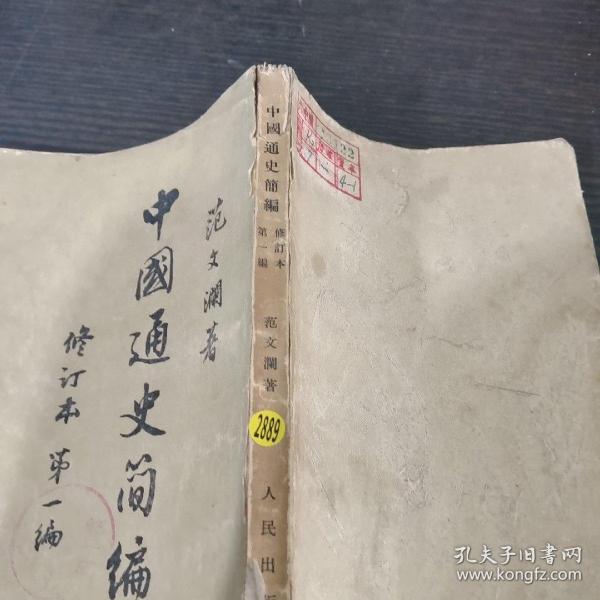 范文瀾著
中國通史简編
修订本 第一編
中國通史簡編
修訂本
第一編
范文瀾著
2889
人民出
22
4-1
孔夫子旧书网
www.kongfz.com